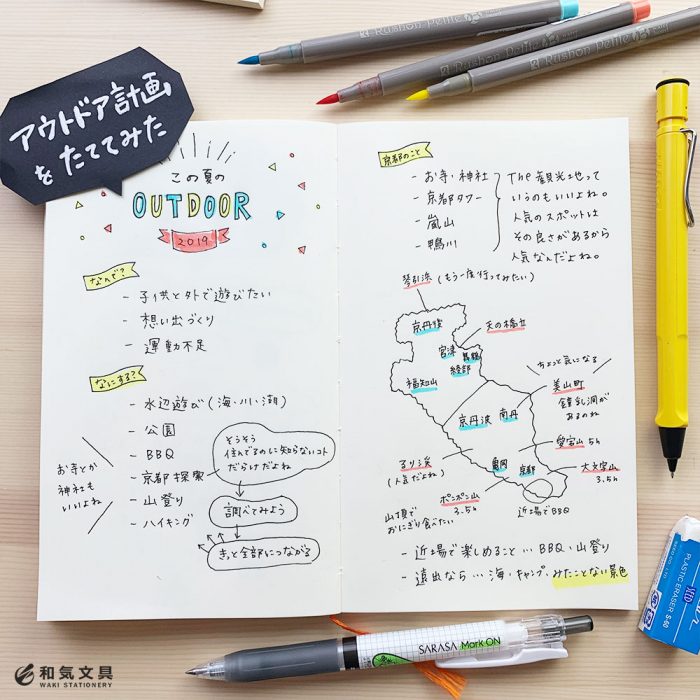 Rushon Petite
Rushon Petite
Rushon Petite
アウトドア計画
をたててみた
この夏の
OUTDOOR
2019
なんで?
- 子供と外で遊びたい
- 想い出づくり
- 運動不足
なにする?
- 水辺遊び(海・川・湖)
- 公園
- BBQ
- 京都探索
- 山登り
- ハイキング
お寺とか
神社も
いいよね
そうそう
住んでるのに知らないコト
だらけだよね
調べてみよう
きっと全部につながる
京都のこと
- お寺・神社
- 京都タワー
- 嵐山
- 鴨川
The 観光地って
いうのもいいよね。
人気のスポットは
その良さがあるから
人気なんだよね。
琴引浜(もう一度行ってみたい)
京丹後
天の橋立
宮津
舞鶴
綾部
福知山
ちょっと気になる
美山町
鍾乳洞が
あるのね
京丹波
南丹
愛宕山 5h
るり渓
(人気だよね)
亀岡
京都
大文字山
3.5h
ポンポン山
3.5h
山頂で
おにぎり食べたい
近場でBBQ
- 近場で楽しめること…BBQ・山登り
- 遠出なら…海・キャンプ・みたことない景色
PLASTIC ERASER S-40
SEED
SARASA Mark ON
和気文具
WAKI STATIONERY